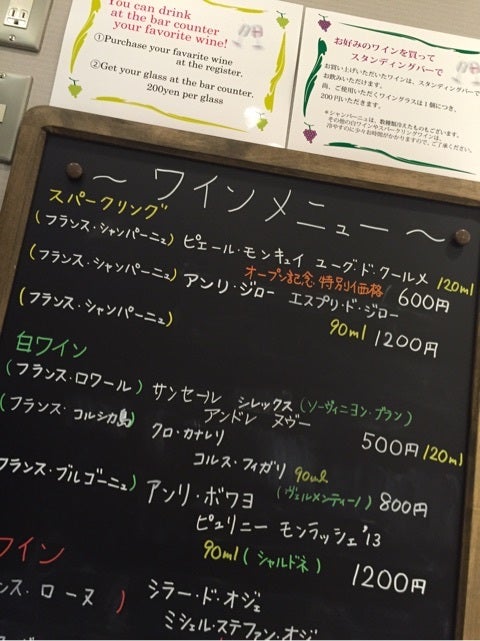 You can drink
at the bar counter
your favorite wine!
①Purchase your favarite wine
at the register.
②Get your glass at the bar counter.
200yen per glass
お好みのワインを買って
スタンディングバーで
お買い上げいただいたワインは、スタンディングバーで
お飲みいただけます。
尚、ご使用いただくワイングラスは1個につき、
200円いただきます。
＊シャンパーニュは、数種類冷えたものもございます。
その他の白ワインやスパークリングワインは、
冷やすのに少々お時間がかかりますので、ご了承ください。
～ワインメニュー～
スパークリング
(フランス・シャンパーニュ) ピエール・モンキュイ ユーグ・ド・クールメ 120ml
オープン記念 特別価格 600円
(フランス・シャンパーニュ) アンリ・ジロー エスプリ・ド・ジロー
(フランス・シャンパーニュ) 90ml 1200円
白ワイン
(フランス・ロワール) サンセール シレックス (ソーヴィニヨン・ブラン)
アンドレ ヌヴー 500円 120ml
(フランス・コルシカ島) クロ・カナレリ
コルス・フィガリ 90ml
(ヴェルメンティーノ) 800円
フランス・ブルゴーニュ) アンリ・ボワヨ
ピュリニー モンラッシェ'13
90ml (シャルドネ) 1200円
ワイン
ンス・ローヌ ) シラー・ド・オジェ
ミシェル・ステファン・オジ